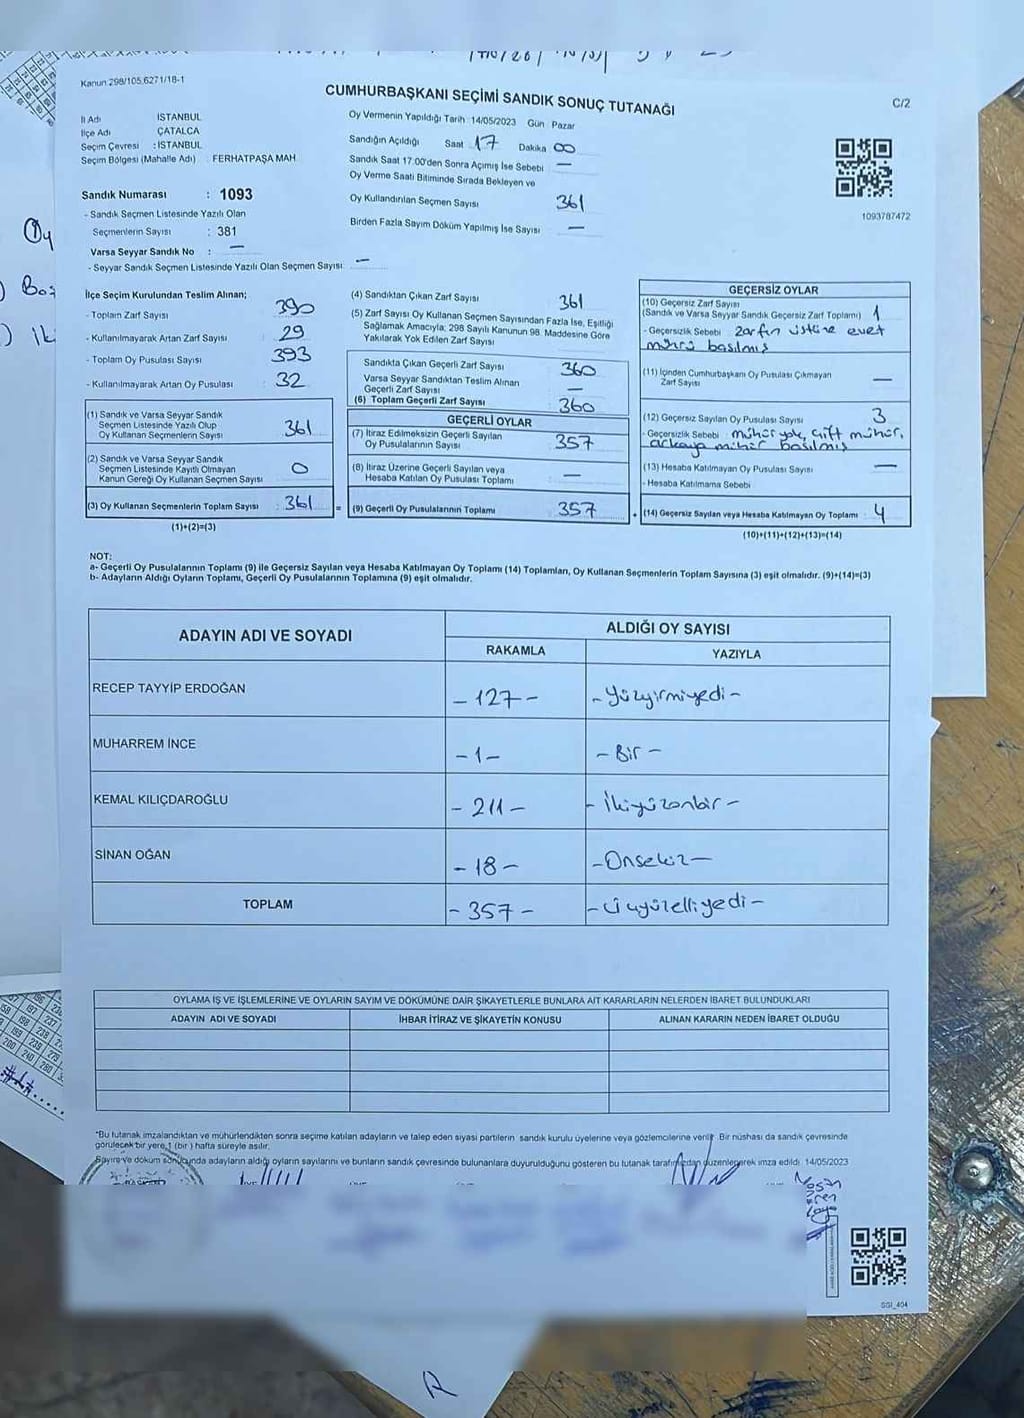 Kanun 298/105,6271/18-1
CUMHURBAŞKANI SEÇİMİ SANDIK SONUÇ TUTANAĞI
C/2
İl Adı İSTANBUL
İlçe Adı ÇATALCA
Seçim Çevresi : İSTANBUL
Seçim Bölgesi (Mahalle Adı) FERHATPAŞA MAH
Sandık Numarası : 1093
- Sandık Seçmen Listesinde Yazılı Olan
Seçmenlerin Sayısı : 381
Varsa Seyyar Sandık No : —
- Seyyar Sandık Seçmen Listesinde Yazılı Olan Seçmen Sayısı: —
Oy Vermenin Yapıldığı Tarih 14/05/2023 Gün Pazar
Sandığın Açıldığı Saat 17 Dakika 00
Sandık Saat 17.00'den Sonra Açımış İse Sebebi —
Oy Verme Saati Bitiminde Sırada Bekleyen ve
Oy Kullandırılan Seçmen Sayısı 361
Birden Fazla Sayım Döküm Yapılmış İse Sayısı —
1093787472
İlçe Seçim Kurulundan Teslim Alınan;
- Toplam Zarf Sayısı 390
- Kullanılmayarak Artan Zarf Sayısı 29
- Toplam Oy Pusulası Sayısı 393
- Kullanılmayarak Artan Oy Pusulası 32
(1) Sandık ve Varsa Seyyar Sandık
Seçmen Listesinde Yazılı Olup
Oy Kullanan Seçmenlerin Sayısı 361
(2) Sandık ve Varsa Seyyar Sandık
Seçmen Listesinde Kayıtlı Olmayan
Kanun Gereği Oy Kullanan Seçmen Sayısı 0
(3) Oy Kullanan Seçmenlerin Toplam Sayısı : 361 =
(1)+(2)=(3)
(4) Sandıktan Çıkan Zarf Sayısı 361
(5) Zarf Sayısı Oy Kullanan Seçmen Sayısından Fazla İse, Eşitliği
Sağlamak Amacıyla; 298 Sayılı Kanunun 98. Maddesine Göre
Yakılarak Yok Edilen Zarf Sayısı
Sandıkta Çıkan Geçerli Zarf Sayısı 360
Varsa Seyyar Sandıktan Teslim Alınan
Geçerli Zarf Sayısı —
(6) Toplam Geçerli Zarf Sayısı 360
GEÇERLİ OYLAR
(7) İtiraz Edilmeksizin Geçerli Sayılan
Oy Pusulalarının Sayısı 357
(8) İtiraz Üzerine Geçerli Sayılan veya
Hesaba Katılan Oy Pusulası Toplamı —
(9) Geçerli Oy Pusulalarının Toplamı 357 +
GEÇERSİZ OYLAR
(10) Geçersiz Zarf Sayısı
(Sandık ve Varsa Seyyar Sandık Geçersiz Zarf Toplamı) 1
- Geçersizlik Sebebi zarfın üstüne evet
mührü basılmış
(11) İçinden Cumhurbaşkanı Oy Pusulası Çıkmayan
Zarf Sayısı —
(12) Geçersiz Sayılan Oy Pusulası Sayısı 3
- Geçersizlik Sebebi : mühür yok, çift mühür,
arkaya mühür basılmış
(13) Hesaba Katılmayan Oy Pusulası Sayısı —
- Hesaba Katılmama Sebebi
(14) Geçersiz Sayılan veya Hesaba Katılmayan Oy Toplamı : 4
(10)+(11)+(12)+(13)=(14)
NOT:
a- Geçerli Oy Pusulalarının Toplamı (9) ile Geçersiz Sayılan veya Hesaba Katılmayan Oy Toplamı (14) Toplamları, Oy Kullanan Seçmenlerin Toplam Sayısına (3) eşit olmalıdır. (9)+(14)=(3)
b- Adayların Aldığı Oyların Toplamı, Geçerli Oy Pusulalarının Toplamına (9) eşit olmalıdır.
ADAYIN ADI VE SOYADI ALDIĞI OY SAYISI
RAKAMLA YAZIYLA
RECEP TAYYİP ERDOĞAN - 127 - - Yüzyirmiyedi -
MUHARREM İNCE - 1 - - Bir -
KEMAL KILIÇDAROĞLU - 211 - - İkiyüzonbir -
SİNAN OĞAN - 18 - - Onsekiz -
TOPLAM - 357 - - Üçyüzelliyedi -
OYLAMA İŞ VE İŞLEMLERİNE VE OYLARIN SAYIM VE DÖKÜMÜNE DAİR ŞİKAYETLERLE BUNLARA AİT KARARLARIN NELERDEN İBARET BULUNDUKLARI
ADAYIN ADI VE SOYADI İHBAR İTİRAZ VE ŞİKAYETİN KONUSU ALINAN KARARIN NEDEN İBARET OLDUĞU
*Bu tutanak imzalandıktan ve mühürlendikten sonra seçime katılan adayların ve talep eden siyasi partilerin sandık kurulu üyelerine veya gözlemcilerine verilir. Bir nüshası da sandık çevresinde
görülecek bir yere 1 (bir) hafta süreyle asılır.
Sayım ve döküm sonucunda adayların aldığı oyların sayılarını ve bunların sandık çevresinde bulunanlara duyurulduğunu gösteren bu tutanak tarafımızdan düzenlenerek imza edildi. 14/05/2023
SGI_404